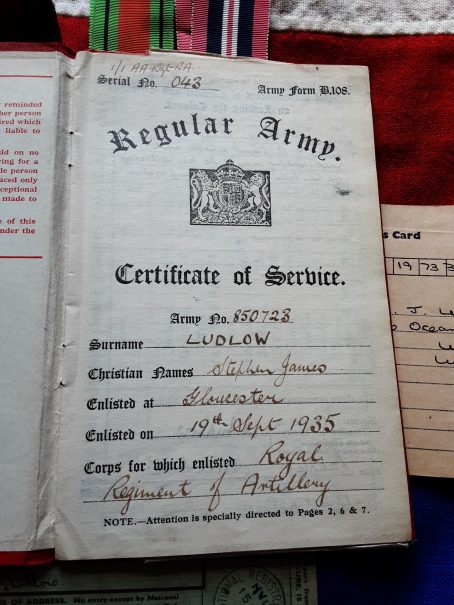 y reminded
her person
ired which
liable to
uld on no
ving for a
le person
aced only
ceptional
made to
e of this
under the
1/1 AA Regt RA
Serial No. 043
Army Form B.108.
Regular Army.
Certificate of Service.
Army No. 850723
Surname LUDLOW
Christian Names Stephen James
Enlisted at Gloucester
Enlisted on 19th Sept 1935
Corps for which enlisted Royal
Regiment of Artillery
NOTE.—Attention is specially directed to Pages 2, 6 & 7.
s Card
19 73 3
J.
Ocean
OF ADDRESS. No entry except by National
NATIONAL REGISTRATION